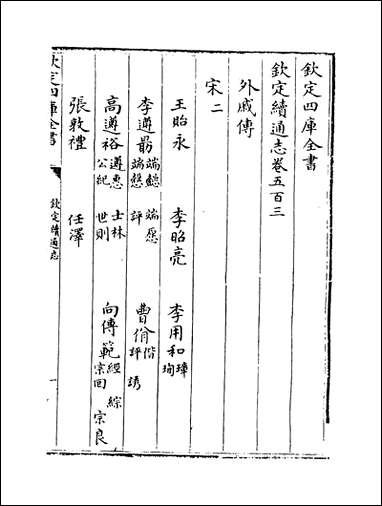 欽定四庫全書
欽定續通志卷五百三
外戚傳
宋二
王貽永 李昭亮 李用和 璋 珣
李遵勗 端懿 端愿 端愨 評 曹佾 偕 評 誘
高遵裕 遵惠 士林 公紀 世則 向傳範 經 綜 宗回 宗良
張敦禮 任澤
欽定四庫全書 欽定續通志 一